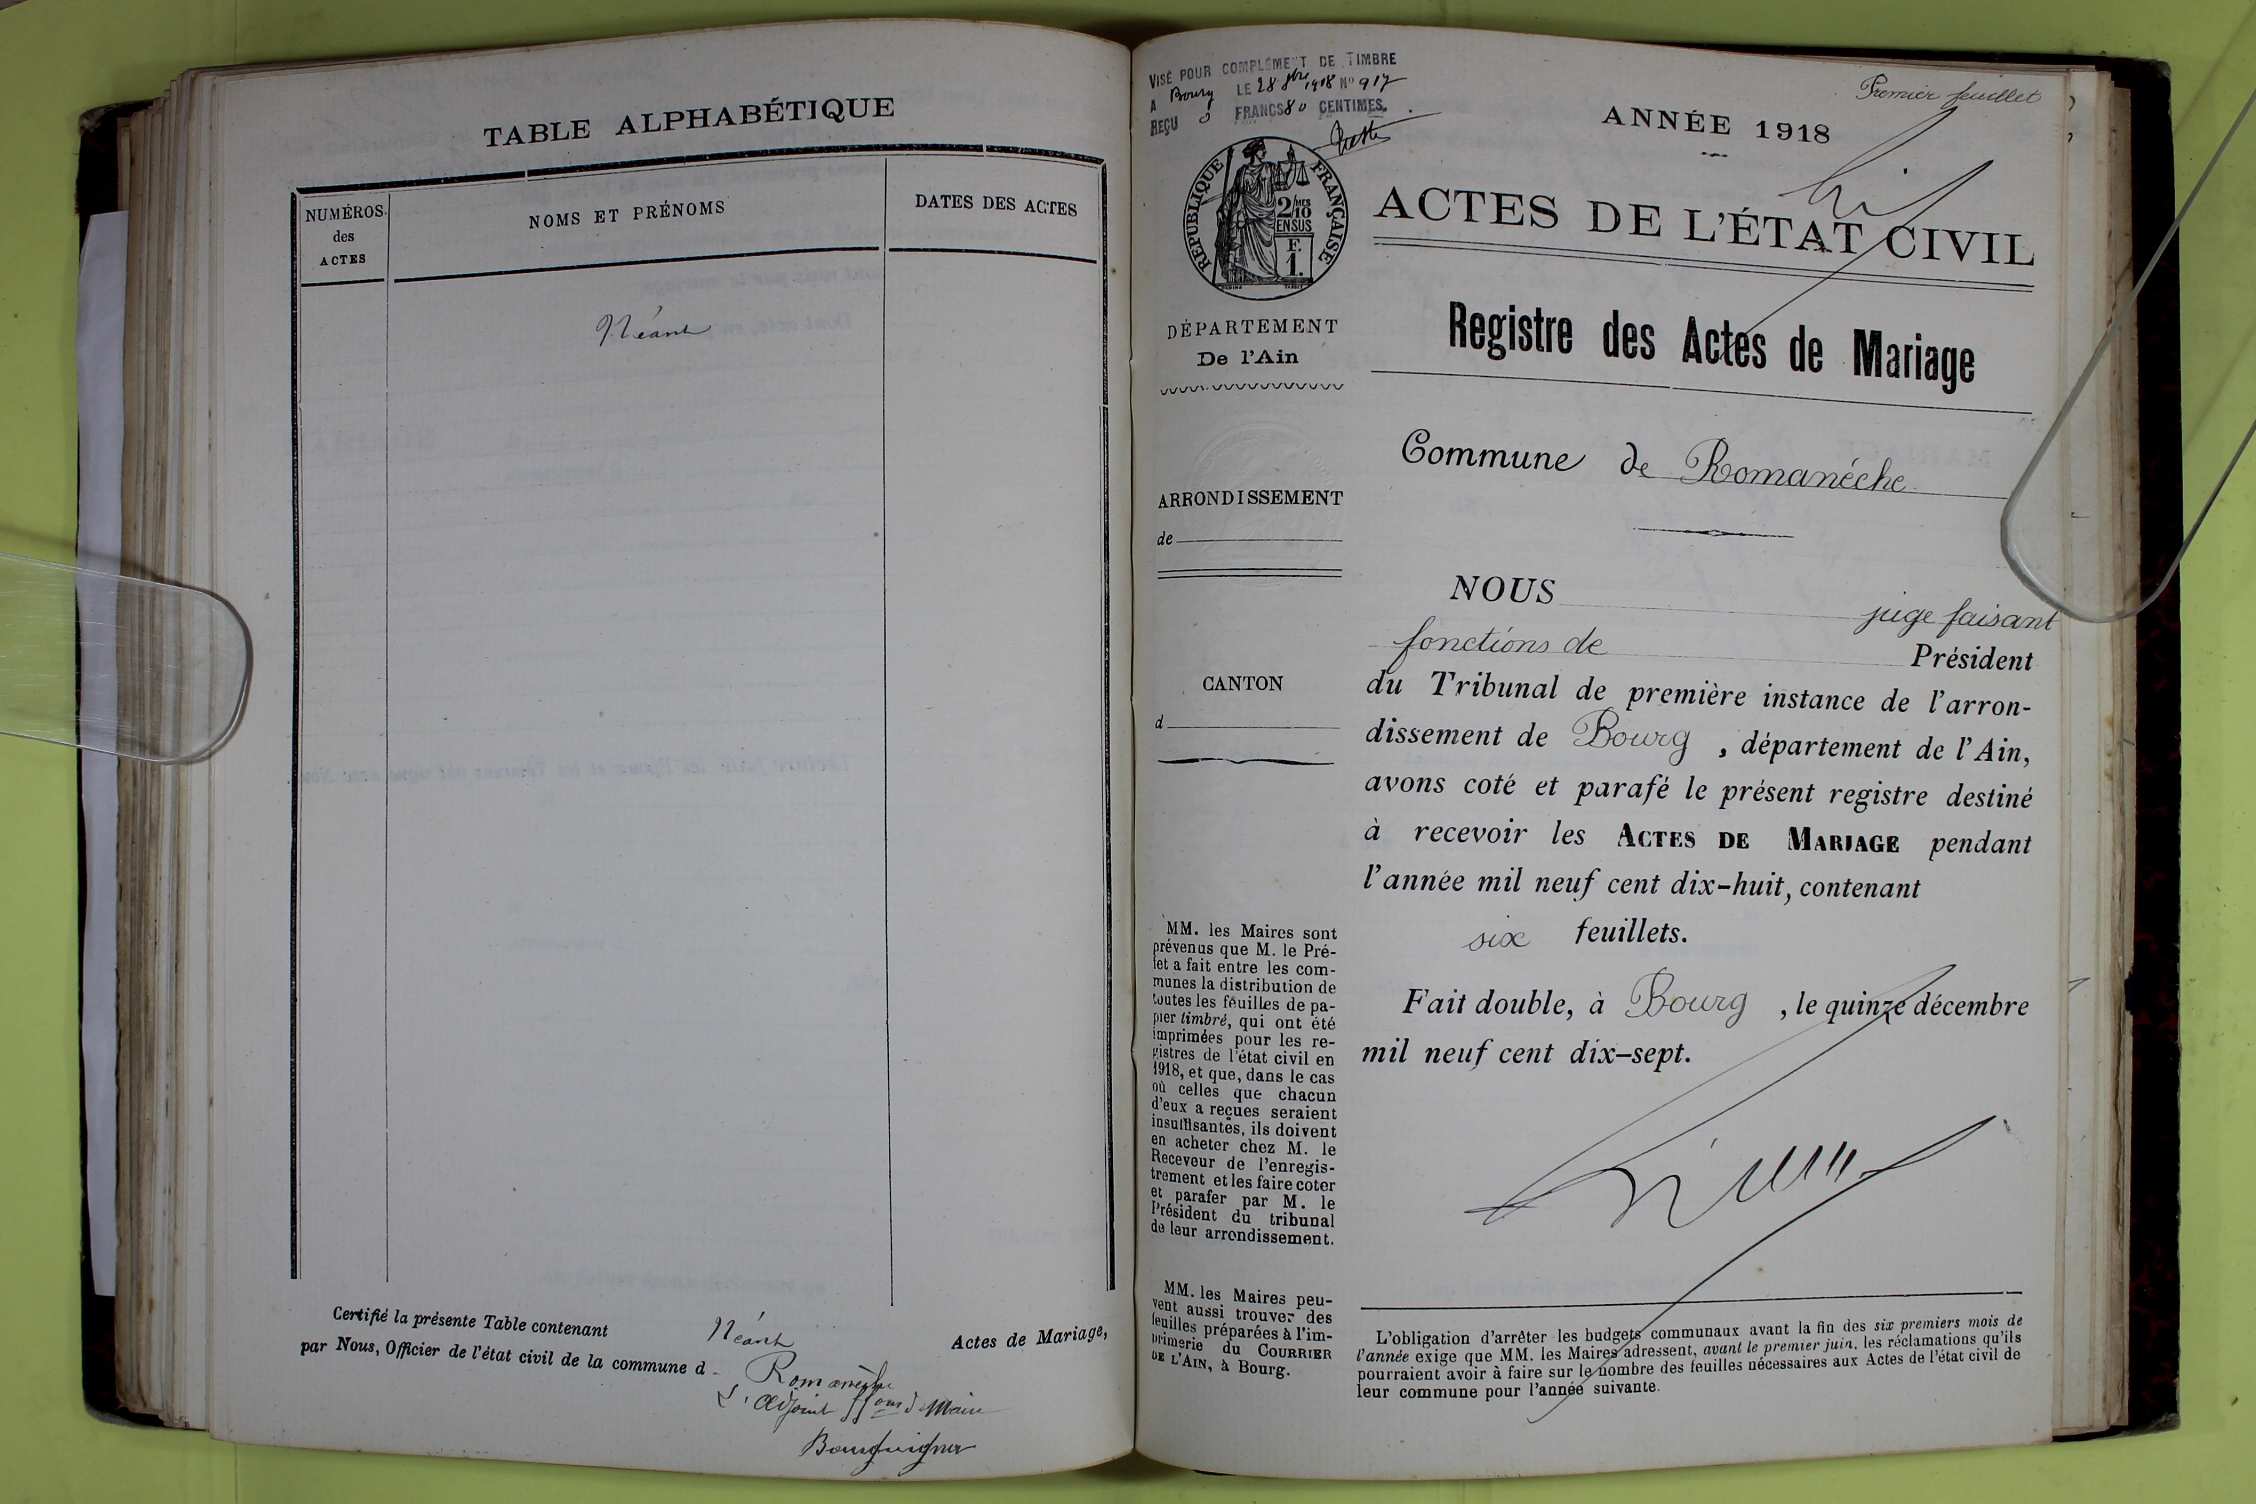 TABLE ALPHABÉTIQUE
NUMÉROS
des
ACTES
NOMS ET PRÉNOMS
DATES DES ACTES
Néant
Certifié la présente Table contenant Néant Actes de Mariage,
par Nous, Officier de l'état civil de la commune d Romanèche
L'adjoint ffons de Maire
Bourguignon
VISÉ POUR COMPLÉMENT DE TIMBRE
A Bourg LE 28 1918 No 917
REÇU 3 FRANCS 80 CENTIMES.
RÉPUBLIQUE FRANÇAISE
2/10MES
EN SUS
F.
1.
DÉPARTEMENT
De l'Ain
ARRONDISSEMENT
de
CANTON
d
MM. les Maires sont
prévenus que M. le Pré-
fet a fait entre les com-
munes la distribution de
toutes les feuilles de pa-
pier timbré, qui ont été
imprimées pour les re-
gistres de l'état civil en
1918, et que, dans le cas
où celles que chacun
d'eux a reçues seraient
insuffisantes, ils doivent
en acheter chez M. le
Receveur de l'enregis-
trement et les faire coter
et parafer par M. le
Président du tribunal
de leur arrondissement.
MM. les Maires peu-
vent aussi trouver des
feuilles préparées à l'im-
primerie du COURRIER
DE L'AIN, à Bourg.
Premier feuillet
ANNÉE 1918
ACTES DE L'ÉTAT CIVIL
Registre des Actes de Mariage
Commune de Romanéche
NOUS juge faisant
fonctions de Président
du Tribunal de première instance de l'arron-
dissement de Bourg, département de l'Ain,
avons coté et parafé le présent registre destiné
à recevoir les ACTES DE MARIAGE pendant
l'année mil neuf cent dix-huit, contenant
six feuillets.
Fait double, à Bourg, le quinze décembre
mil neuf cent dix-sept.
L'obligation d'arrêter les budgets communaux avant la fin des six premiers mois de
l'année exige que MM. les Maires adressent, avant le premier juin, les réclamations qu'ils
pourraient avoir à faire sur le nombre des feuilles nécessaires aux Actes de l'état civil de
leur commune pour l'année suivante.